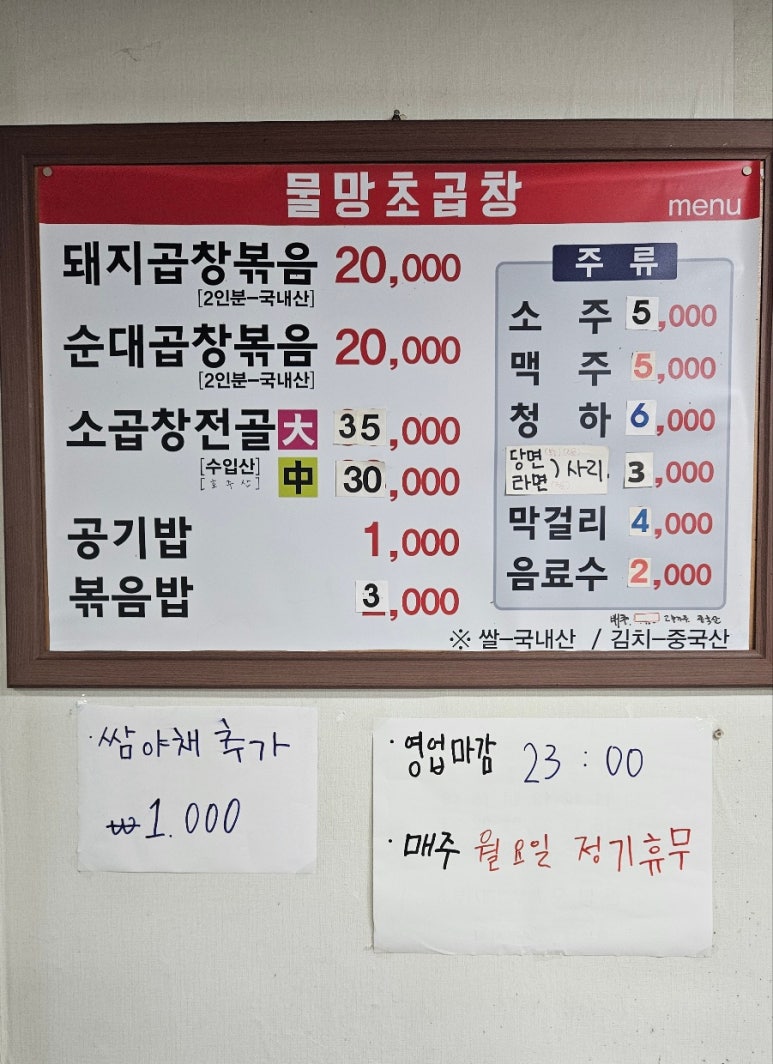 물망초곱창
menu
돼지곱창볶음 20,000
[2인분-국내산]
순대곱창볶음 20,000
[2인분-국내산]
소곱창전골 大 35,000
[수입산]
[호주산]
中 30,000
공기밥 1,000
볶음밥 3,000
주 류
소 주 5,000
맥 주 5,000
청 하 6,000
당면
라면 ) 사리 3,000
막걸리 4,000
음료수 2,000
※ 쌀-국내산 / 김치-중국산
· 쌈야채 추가
₩1.000
· 영업마감 23 : 00
· 매주 월요일 정기휴무